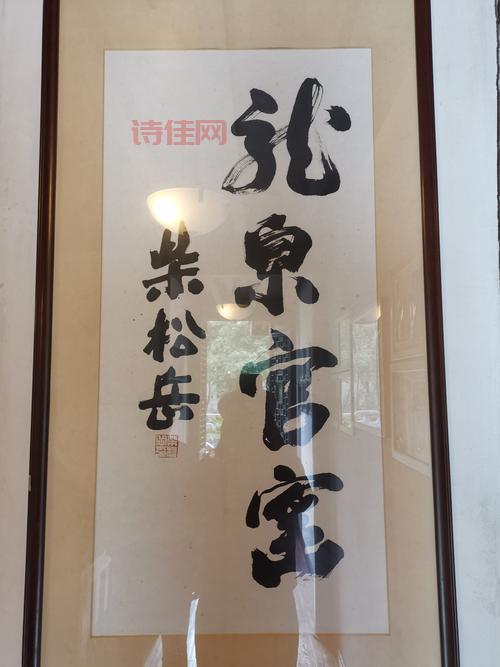 龙泉官窑
柴松岳
诗佳网